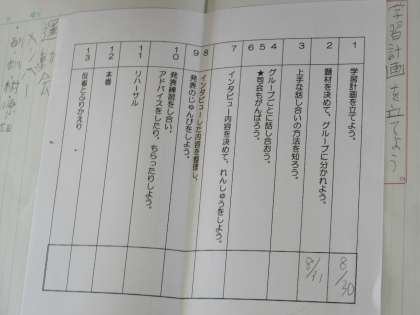 学習計画を立てよう
1
学習計画を立てよう。
8/30
2
題材を決めて、グループに分かれよう。
8/31
3
上手な話し合いの方法を知ろう。
4
5
6
グループごとに話し合おう。
★司会もがんばろう。
7
インタビュー内容を決めて、れんしゅうをしよう。
8
9
インタビューした内容を整理し、
発表のじゅんびをしよう。
10
発表練習をし合い、
アドバイスをしたり、もらったりしよう。
11
リハーサル
12
本番
13
反省とふりかえり